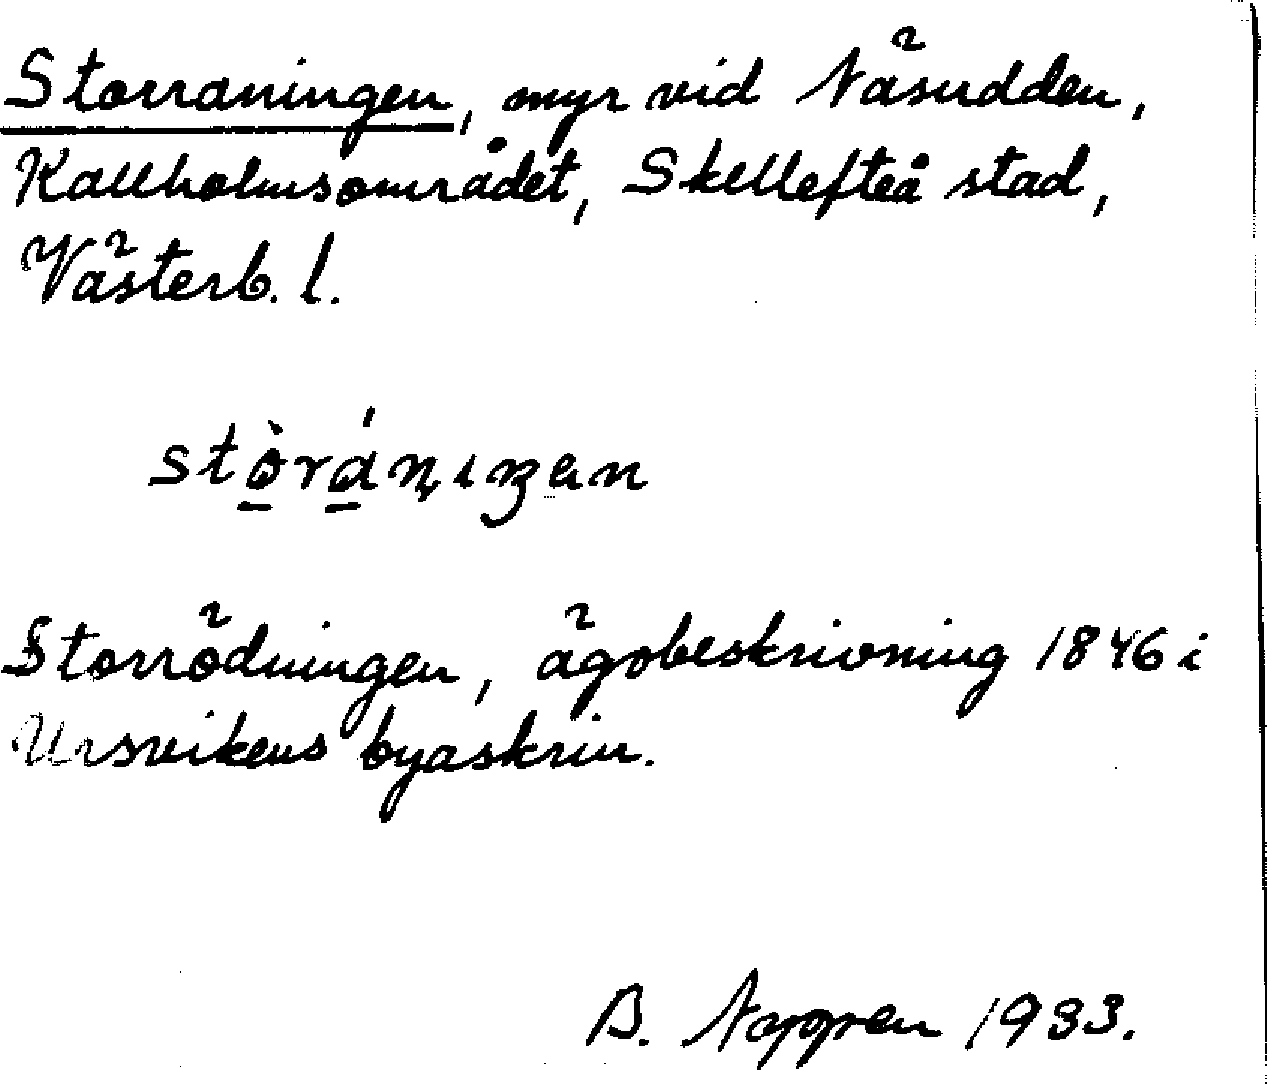 Storraningen, myr vid Näsudden,
Kallholmsområdet, Skellefteå stad,
Västerb. l.
stòráṇıŋen
Storrödningen, ägobeskrivning 1846 i
Ursvikens byaskrin.
B. Noppen 1933.